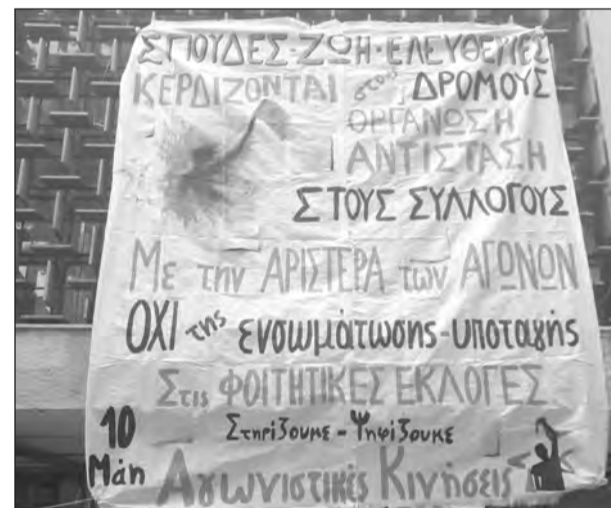 ΣΠΟΥΔΕΣ-ΖΩΗ-ΕΛΕΥΘΕΡΙΕΣ
ΚΕΡΔΙΖΟΝΤΑΙ στους ΔΡΟΜΟΥΣ
ΟΡΓΑΝΩΣΗ
ΑΝΤΙΣΤΑΣΗ
ΣΤΟΥΣ ΣΥΛΛΟΓΟΥΣ
Με την ΑΡΙΣΤΕΡΑ των ΑΓΩΝΩΝ
ΟΧΙ της ενσωμάτωσης-υποταγής
Στις ΦΟΙΤΗΤΙΚΕΣ ΕΚΛΟΓΕΣ
10 Μάη
Στηρίζουμε - Ψηφίζουμε
Αγωνιστικές Κινήσεις